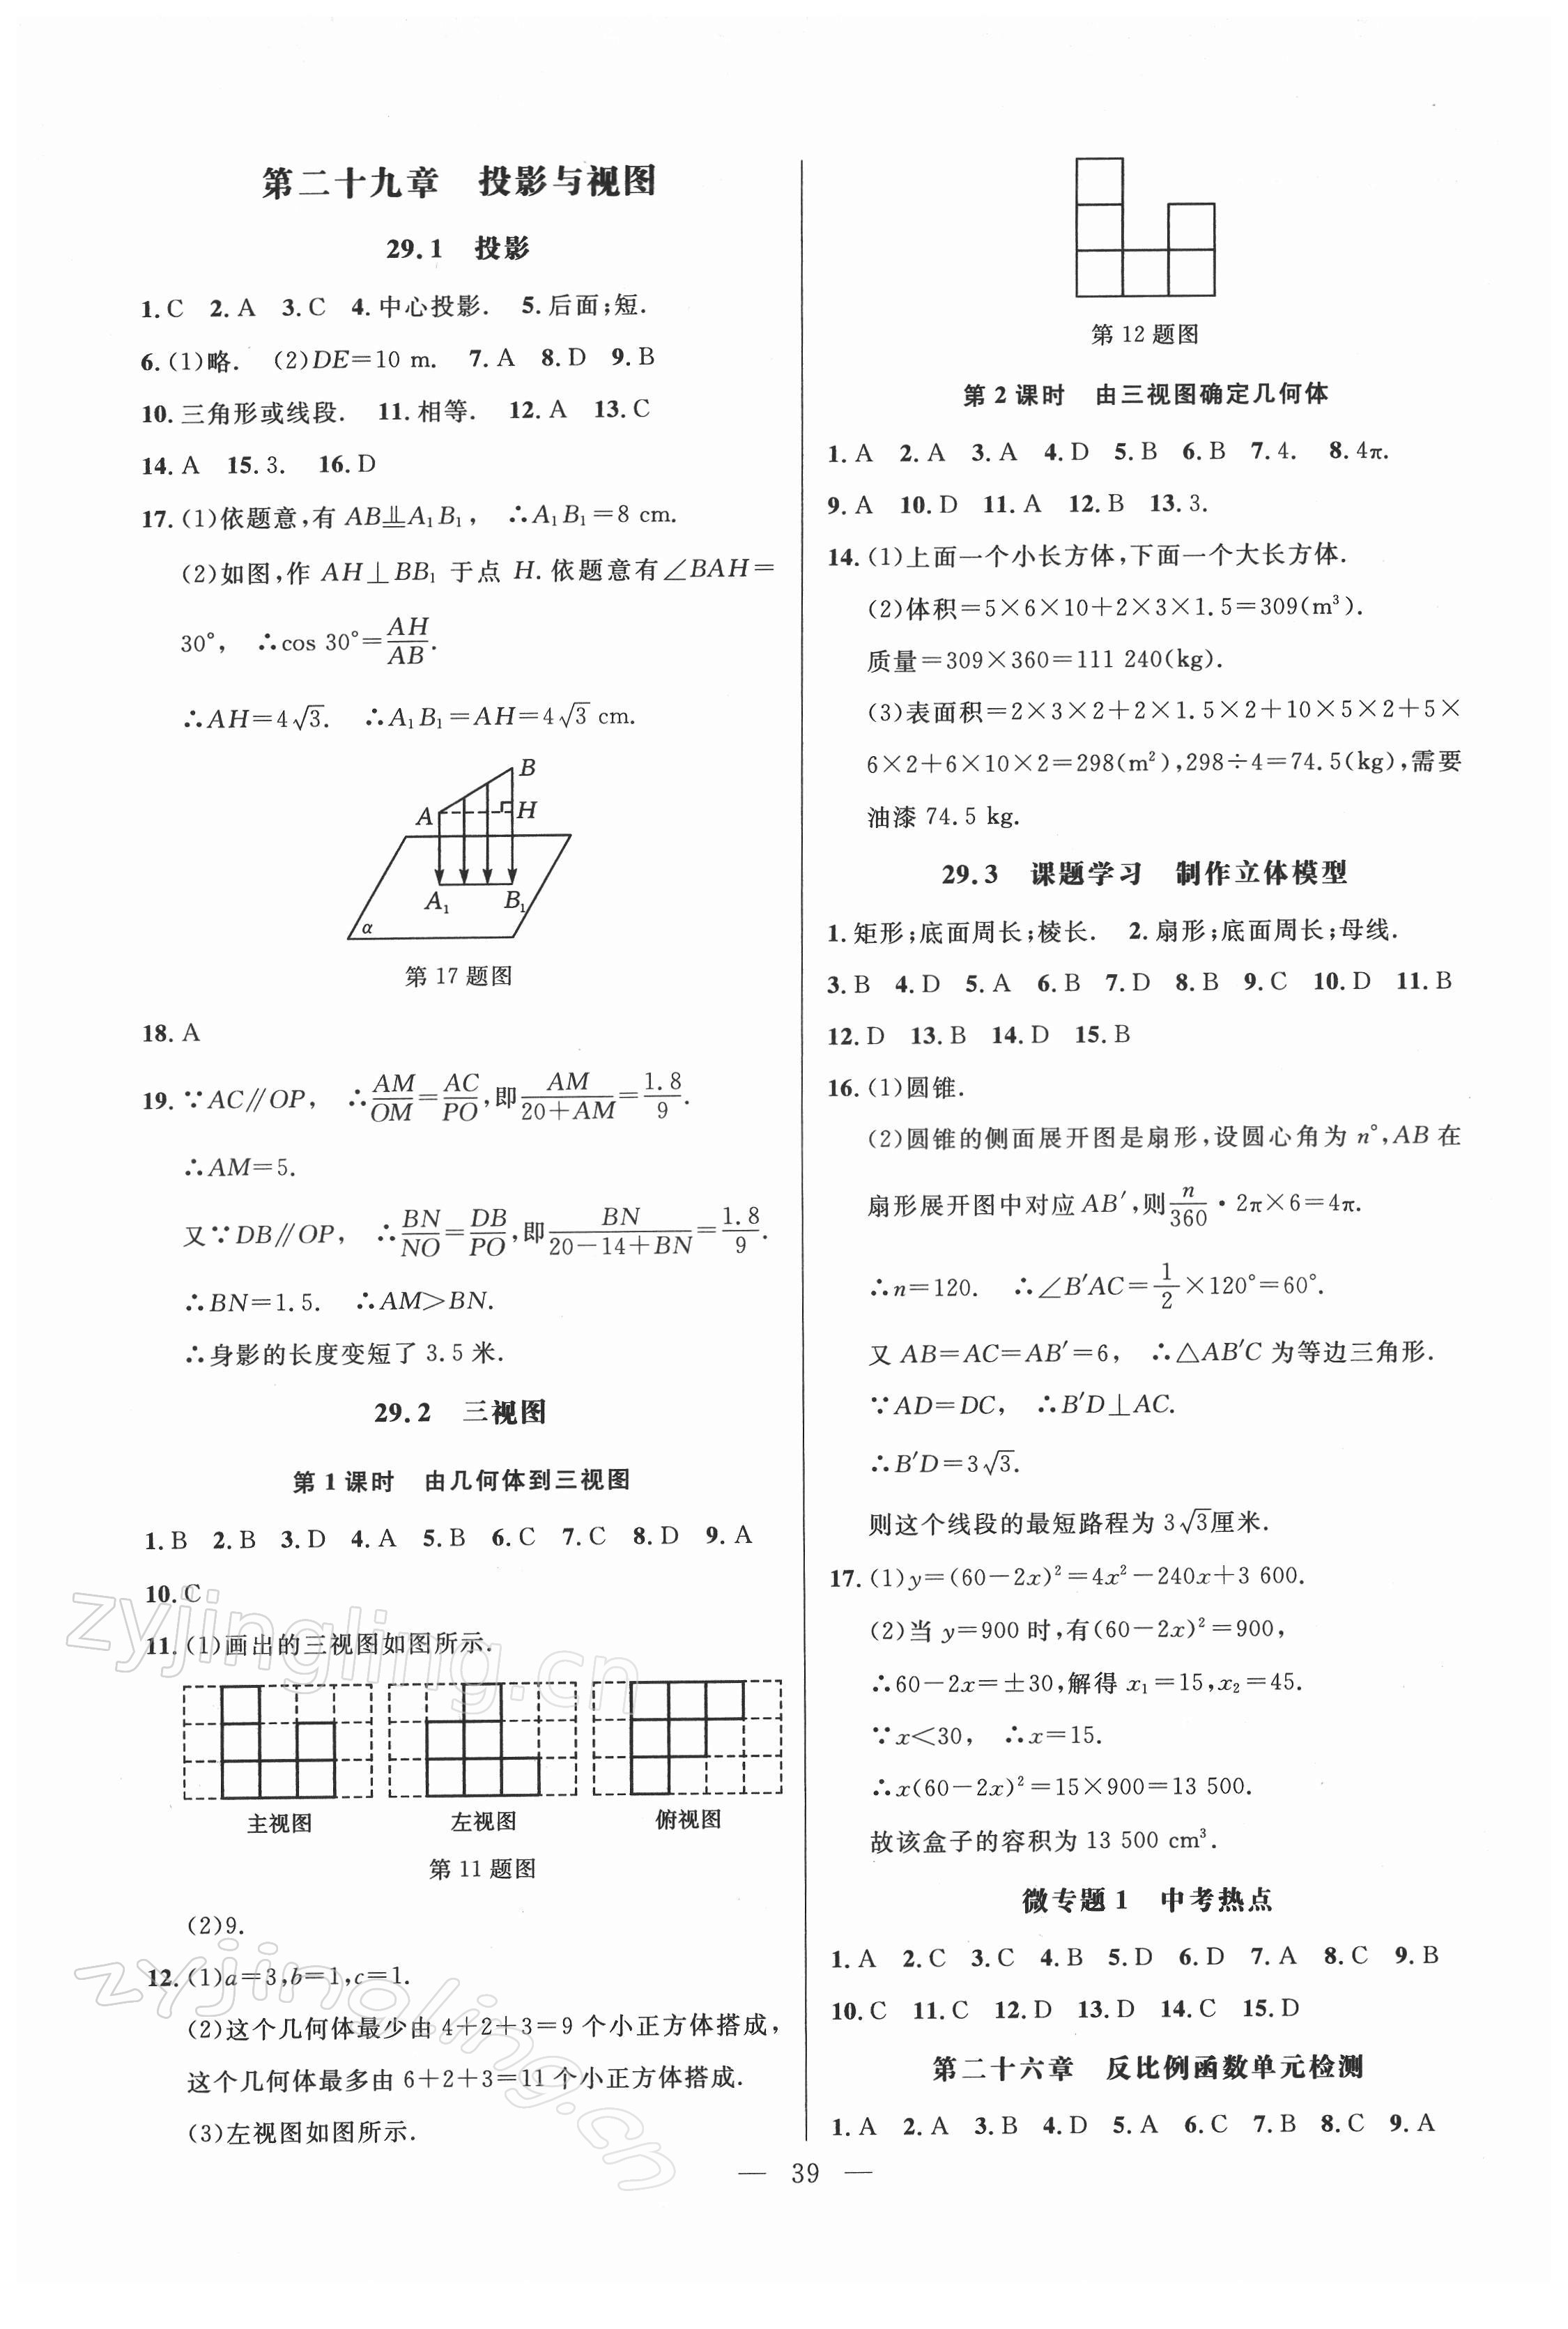 第二十九章 投影与视图
29.1 投影
1.C 2.A 3.C 4.中心投影. 5.后面;短.
6.(1)略. (2)DE=10 m. 7.A 8.D 9.B
10.三角形或线段. 11.相等. 12.A 13.C
14.A 15.3. 16.D
17.(1)依题意,有 AB⫫A₁B₁, ∴A₁B₁=8 cm.
(2)如图,作 AH⊥BB₁ 于点 H.依题意有∠BAH=
30°, ∴cos 30°=AH/AB.
∴AH=4√3. ∴A₁B₁=AH=4√3 cm.
B
A
H
A₁
B₁
α
第 17 题图
18.A
19.∵AC∥OP, ∴AM/OM=AC/PO,即AM/(20+AM)=1.8/9.
∴AM=5.
又∵DB∥OP, ∴BN/NO=DB/PO,即BN/(20-14+BN)=1.8/9.
∴BN=1.5. ∴AM>BN.
∴身影的长度变短了 3.5 米.
29.2 三视图
第 1 课时 由几何体到三视图
1.B 2.B 3.D 4.A 5.B 6.C 7.C 8.D 9.A
10.C
11.(1)画出的三视图如图所示.
主视图 左视图 俯视图
第 11 题图
(2)9.
12.(1)a=3,b=1,c=1.
(2)这个几何体最少由 4+2+3=9 个小正方体搭成,
这个几何体最多由 6+2+3=11 个小正方体搭成.
(3)左视图如图所示.
第 12 题图
第 2 课时 由三视图确定几何体
1.A 2.A 3.A 4.D 5.B 6.B 7.4. 8.4π.
9.A 10.D 11.A 12.B 13.3.
14.(1)上面一个小长方体,下面一个大长方体.
(2)体积=5×6×10+2×3×1.5=309(m³).
质量=309×360=111 240(kg).
(3)表面积=2×3×2+2×1.5×2+10×5×2+5×
6×2+6×10×2=298(m²),298÷4=74.5(kg),需要
油漆 74.5 kg.
29.3 课题学习 制作立体模型
1.矩形;底面周长;棱长. 2.扇形;底面周长;母线.
3.B 4.D 5.A 6.B 7.D 8.B 9.C 10.D 11.B
12.D 13.B 14.D 15.B
16.(1)圆锥.
(2)圆锥的侧面展开图是扇形,设圆心角为 n°,AB 在
扇形展开图中对应 AB′,则n/360·2π×6=4π.
∴n=120. ∴∠B′AC=1/2×120°=60°.
又 AB=AC=AB′=6, ∴△AB′C 为等边三角形.
∵AD=DC, ∴B′D⊥AC.
∴B′D=3√3.
则这个线段的最短路程为 3√3厘米.
17.(1)y=(60-2x)²=4x²-240x+3 600.
(2)当 y=900 时,有(60-2x)²=900,
∴60-2x=±30,解得 x₁=15,x₂=45.
∵x<30, ∴x=15.
∴x(60-2x)²=15×900=13 500.
故该盒子的容积为 13 500 cm³.
微专题 1 中考热点
1.A 2.C 3.C 4.B 5.D 6.D 7.A 8.C 9.B
10.C 11.C 12.D 13.D 14.C 15.D
第二十六章 反比例函数单元检测
1.A 2.A 3.B 4.D 5.A 6.C 7.B 8.C 9.A
— 39 —
zyjingling.cn
zyjingling.cn